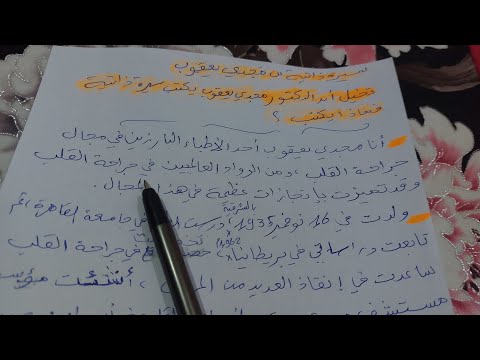 سيرة ذاتية عن مجدي يعقوب
تخيل أن الدكتور مجدي يعقوب يكتب سيرة ذاتية
فماذا يكتب ؟
أنا مجدي يعقوب أحد الأطباء البارزين في مجال
جراحة القلب ، ومن الرواد العالميين في جراحة القلب
وقد تميزت بإنجازات عظيمة في هذا المجال .
ولدت في 16 نوفمبر 1935 بالشرقية ، درست في جامعة القاهرة ثم
تابعت دراساتي في بريطانيا 1962 في جراحة القلب
ساعدت في إنقاذ العديد من ، أنشئت